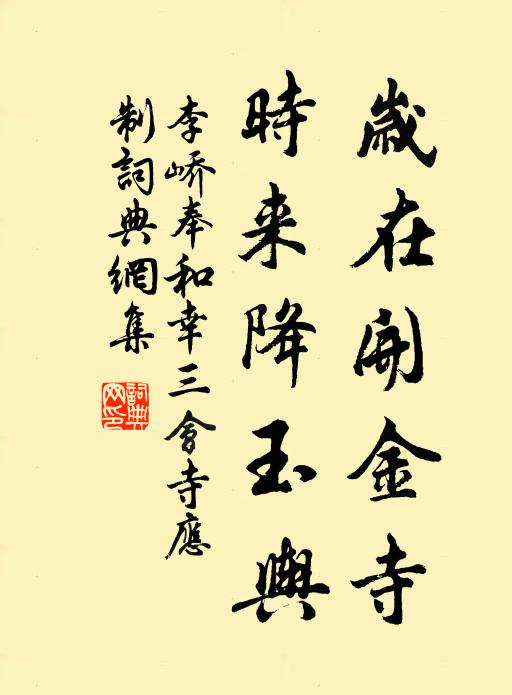 歲在開金寺
時來降玉輿
李嶠奉和幸三會寺應
制詞典網集
詞典網印